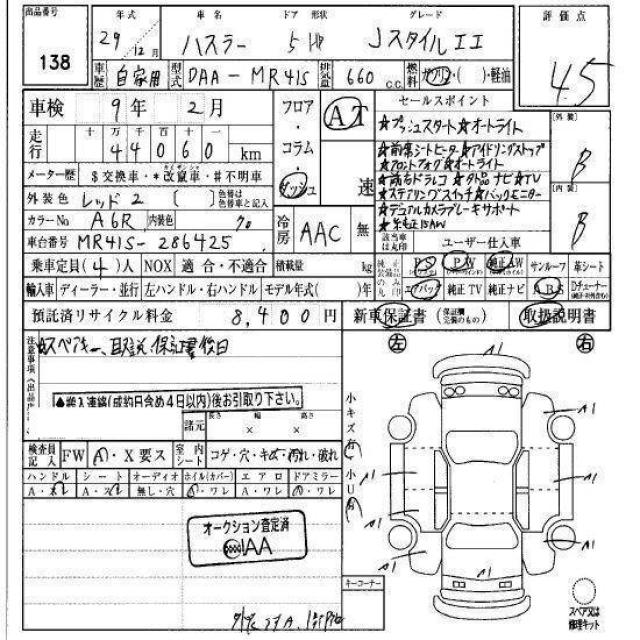 出品番号
138
年式
29年12月
車名
ハスラー
ドア 形状
5 HB
グレード
JスタイルII
評価点
4.5
車歴
自家用
型式
DAA-MR41S
排気量
660 C.C.
燃料
ガソリン・( )・軽油
車検 9年 2月
走行
十 万 千 百 十 一
44060 km
メーター歴 $交換車・*改竄車・#不明車
外装色 レッド2 ( )
色替は色替車と記入
カラーNo A6R 内装色
車台番号 MR41S-286425
フロア・コラム・ダッシュ
AT
速
冷房 AAC 無
セールスポイント
★プッシュスタート★オートライト
★前席シートヒーター★アイドリングストップ
★フロントフォグ★オートライト
★ステアリングスイッチ★バックモニター
★デュアルカメラブレーキサポート
★純正15AW
該当車は丸印
ユーザー仕入車
[外装]
B
[内装]
B
乗車定員(4)人 NOX 適合・不適合 積載量 kg
純正装備品のみ丸印
PS PW 純正AW サンルーフ 革シート
エアバッグ 純正TV 純正ナビ ABS Dチューナー
輸入車 ディーラー・並行 左ハンドル・右ハンドル モデル年式( )年
預託済リサイクル料金 8,400円
新車保証書 (保証欄完備のもの) 取扱説明書
注意事項(出品店
★スペアキー、取説、保証書後日
▲搬入連絡(成約日含め4日以内)後お引取り下さい。
諸元
長さ 幅 高さ
× ×
検査員記入
FW A・X要ス
室内シート
コゲ・穴・キズ・汚れ・破れ
ハンドル シート オーディオ ホイル(カバー) エアロ ドアミラー
A・スレ A・スレ 無し・穴 A・ワレ A・ワレ A・ワレ
オークション査定済
AA
小キズ有
小U有
左
右
A1
A1
A1
A1
A1
A1
A1
A1
A1
A1
キーコーナー
スペア又は修理キット